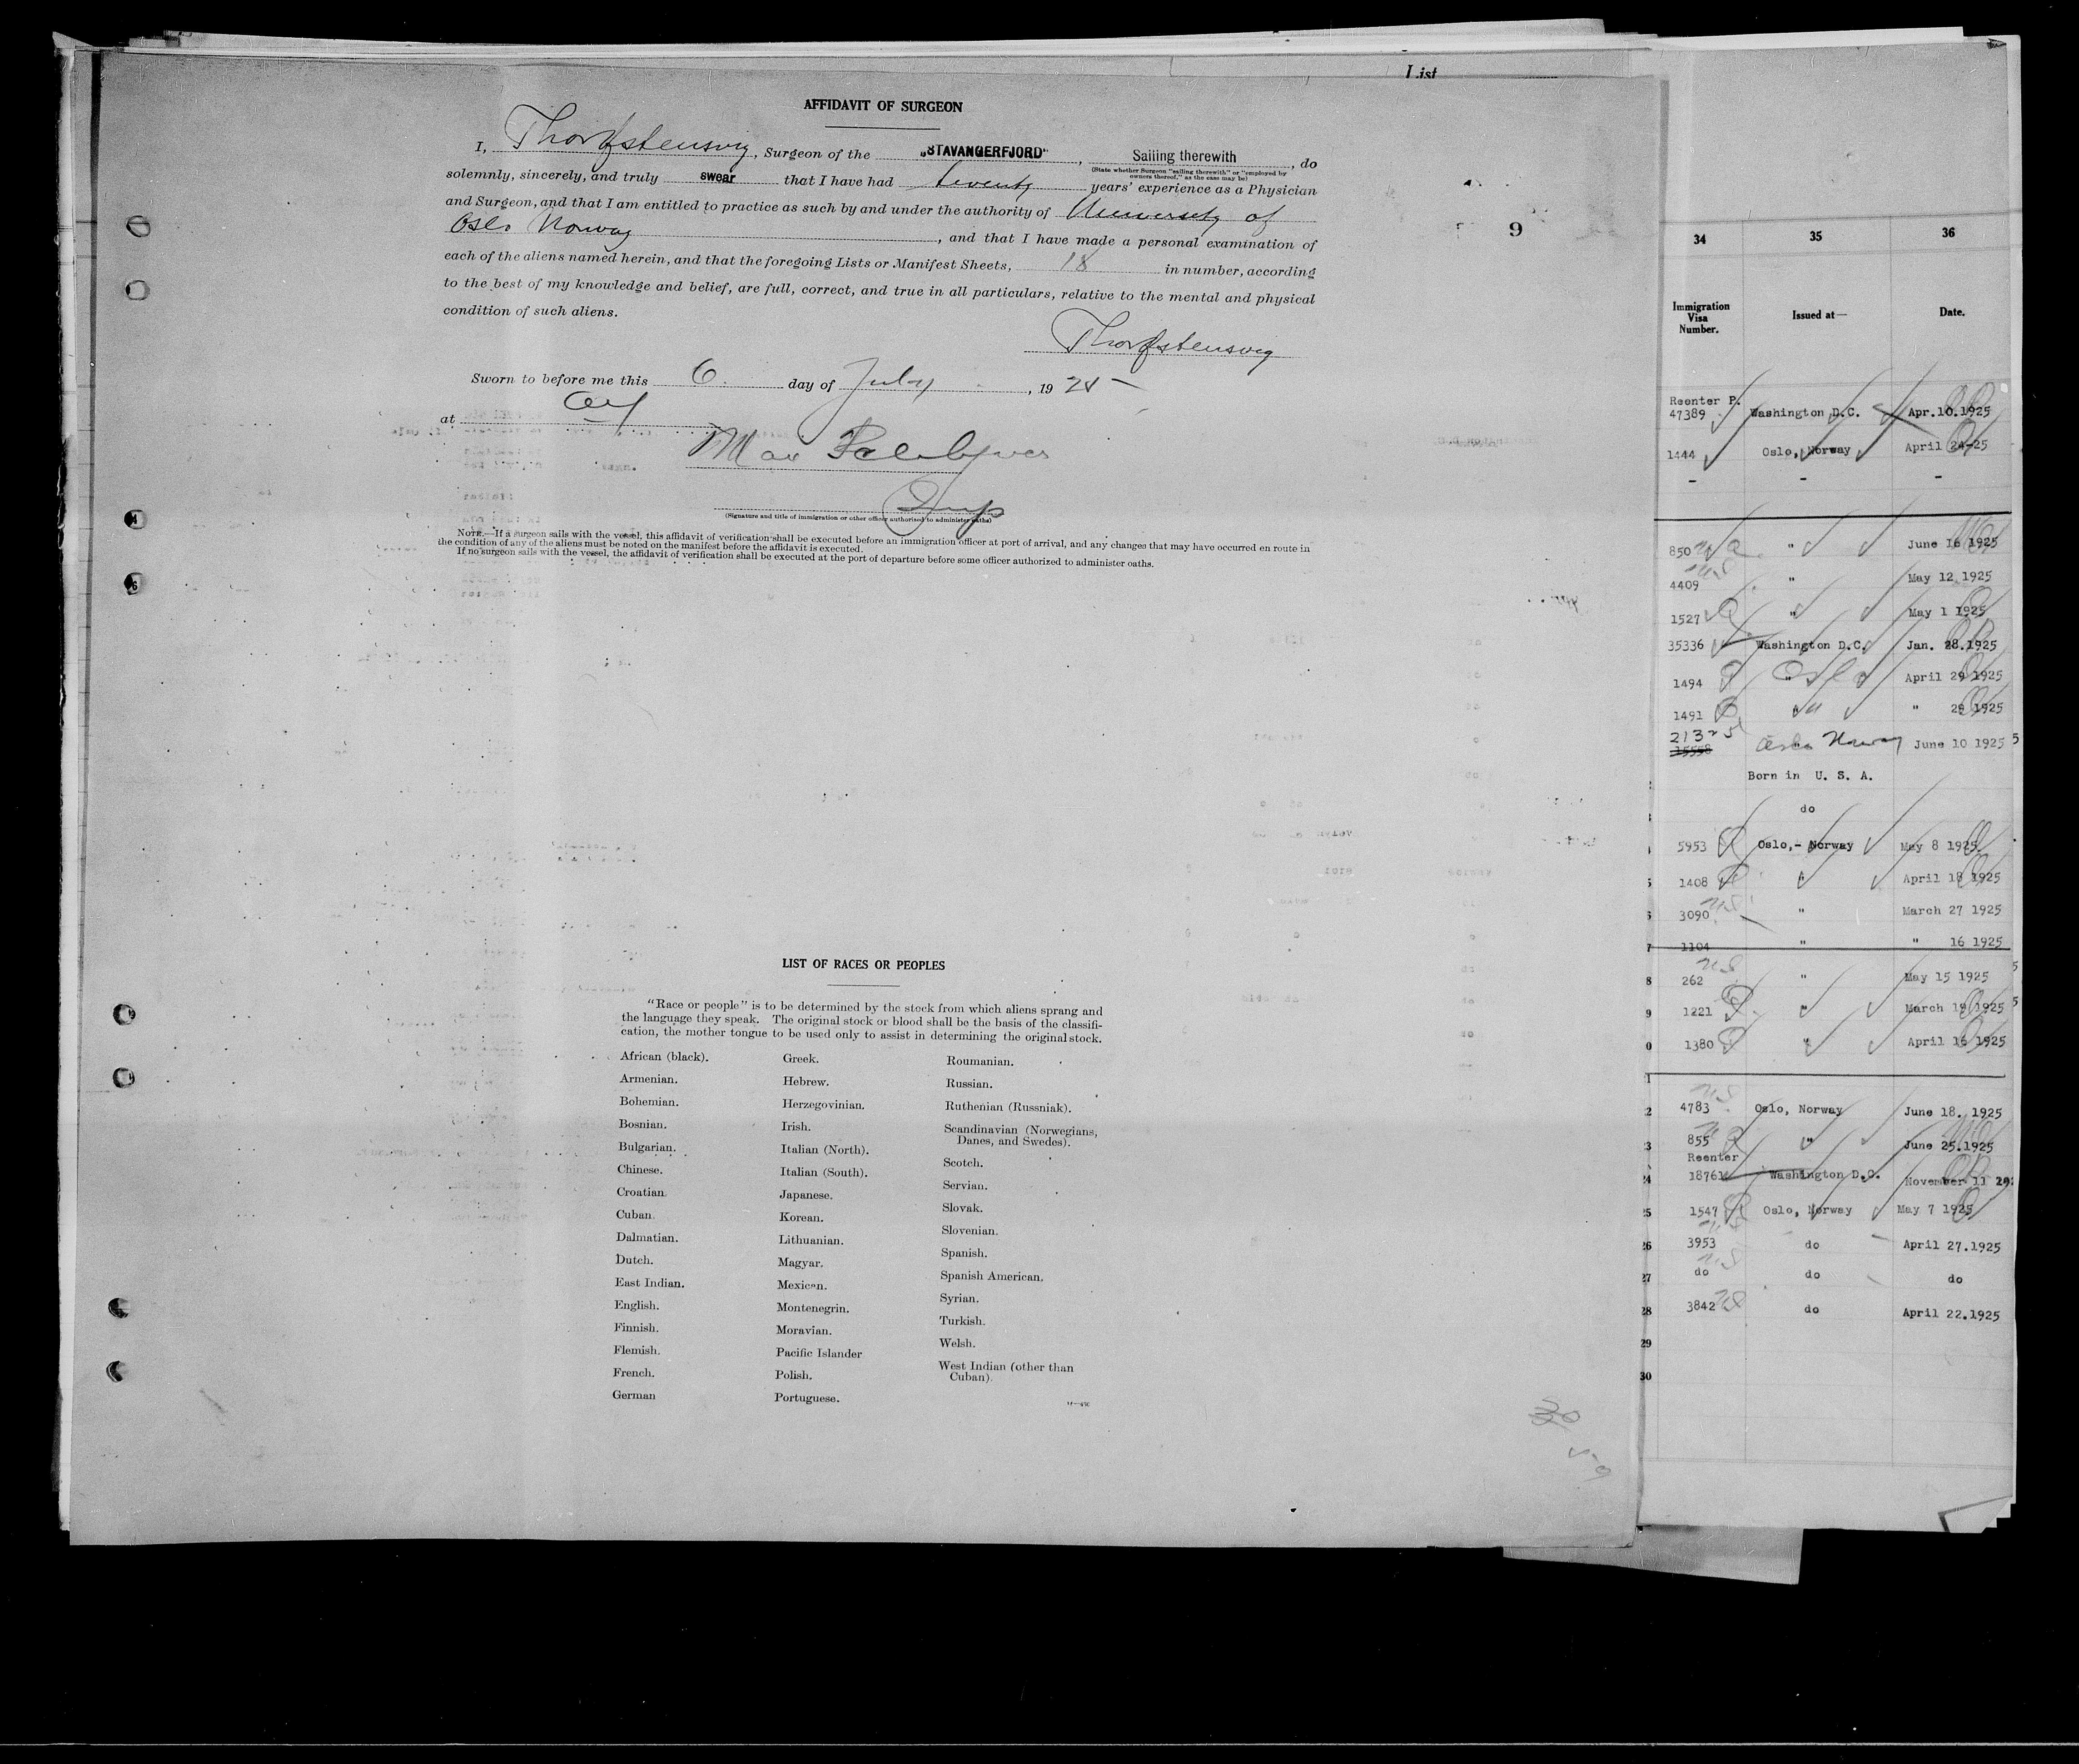 List
AFFIDAVIT OF SURGEON
I, , Surgeon of the "STAVANGERFJORD", Sailing therewith, do
(State whether Surgeon "sailing therewith" or "employed by
owners thereof," as the case may be)
solemnly, sincerely, and truly swear that I have had twenty years' experience as a Physician
and Surgeon, and that I am entitled to practice as such by and under the authority of University of
Oslo Norway, and that I have made a personal examination of
each of the aliens named herein, and that the foregoing Lists or Manifest Sheets, 18 in number, according
to the best of my knowledge and belief, are full, correct, and true in all particulars, relative to the mental and physical
condition of such aliens.
Sworn to before me this 6. day of July, 1925
at
Max
Insp
(Signature and title of immigration or other officer authorized to administer oaths)
NOTE.—If a surgeon sails with the vessel, this affidavit of verification shall be executed before an immigration officer at port of arrival, and any changes that may have occurred en route in
the condition of any of the aliens must be noted on the manifest before the affidavit is executed.
If no surgeon sails with the vessel, the affidavit of verification shall be executed at the port of departure before some officer authorized to administer oaths.
9
LIST OF RACES OR PEOPLES
"Race or people" is to be determined by the stock from which aliens sprang and
the language they speak. The original stock or blood shall be the basis of the classifi-
cation, the mother tongue to be used only to assist in determining the original stock.
African (black).
Armenian.
Bohemian.
Bosnian.
Bulgarian.
Chinese.
Croatian.
Cuban.
Dalmatian.
Dutch.
East Indian.
English.
Finnish.
Flemish.
French.
German
Greek.
Hebrew.
Herzegovinian.
Irish.
Italian (North).
Italian (South).
Japanese.
Korean.
Lithuanian.
Magyar.
Mexican.
Montenegrin.
Moravian.
Pacific Islander
Polish.
Portuguese.
Roumanian.
Russian.
Ruthenian (Russniak).
Scandinavian (Norwegians,
Danes, and Swedes).
Scotch.
Servian.
Slovak.
Slovenian.
Spanish.
Spanish American.
Syrian.
Turkish.
Welsh.
West Indian (other than
Cuban).
30
34 35 36
Immigration
Visa
Number.
Issued at—
Date.
Reenter P.
47389 Washington D.C. Apr.10.1925
1444 Oslo, Norway April 24-25
- - -
850 " June 16 1925
4409 " May 12 1925
1527 " May 1 1925
35336 Washington D.C. Jan. 28.1925
1494 Oslo April 29 1925
1491 " " 29 1925
21325
15558 Oslo Norway June 10 1925 5
Born in U. S. A.
do
5953 Oslo,- Norway May 8 1925
1408 " April 18 1925
3090 " March 27 1925
7 1104 " " 16 1925
8 262 " May 15 1925 5
9 1221 " March 19 1925 5
0 1380 " April 16 1925
1
2 4783 Oslo, Norway June 18. 1925
3 855 " June 25.1925
Reenter
24 18761 Washington D.C. November 11 192
25 1547 Oslo, Norway May 7 1925
26 3953 do April 27.1925
27 do do do
28 3842 do April 22.1925
29
30